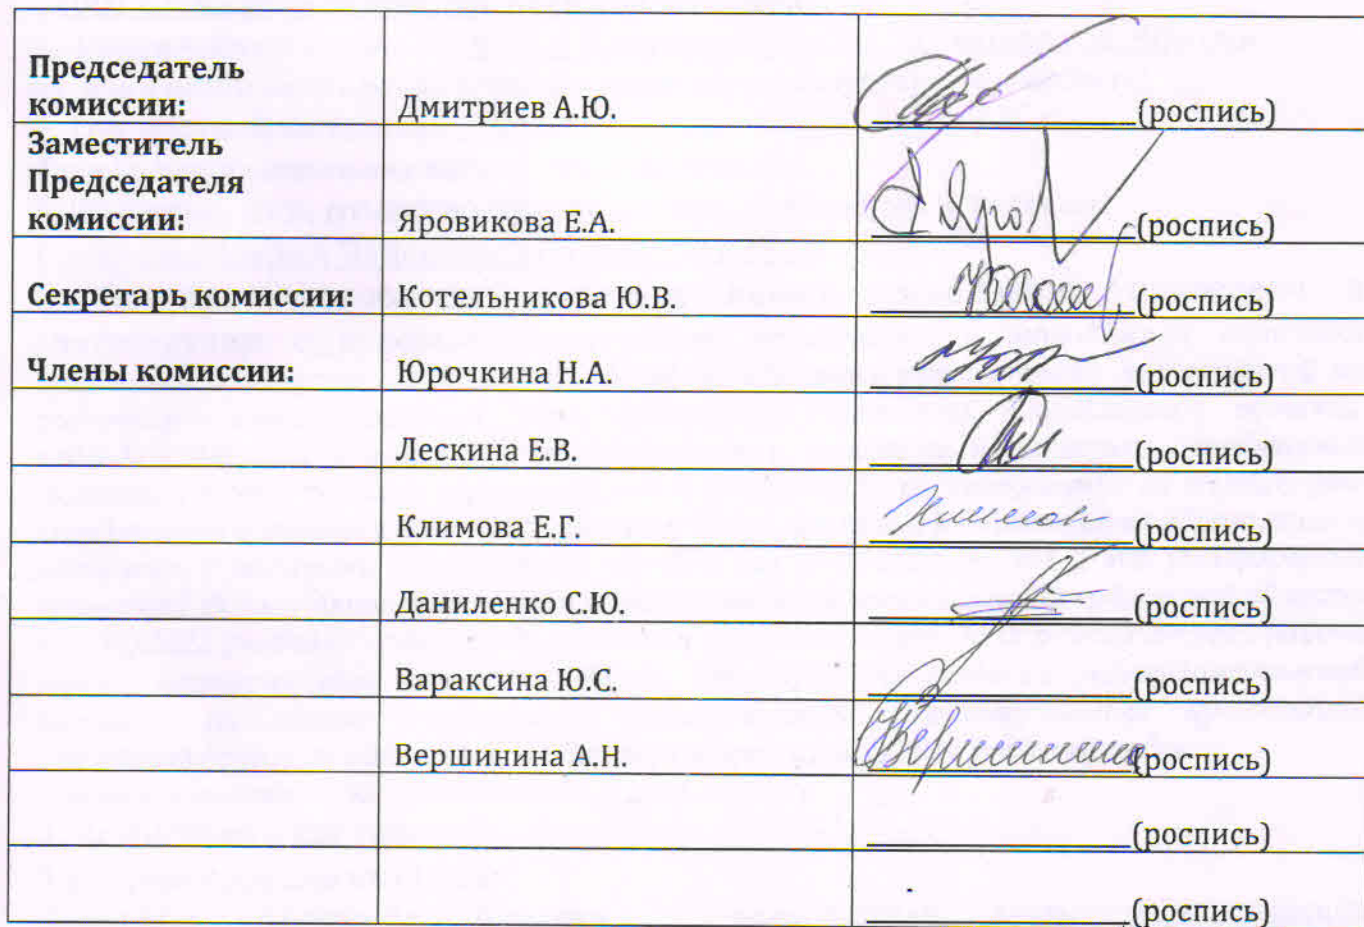 Председатель
комиссии: Дмитриев А.Ю. (роспись)
Заместитель
Председателя
комиссии: Яровикова Е.А. (роспись)
Секретарь комиссии: Котельникова Ю.В. (роспись)
Члены комиссии: Юрочкина Н.А. (роспись)
Лескина Е.В. (роспись)
Климова Е.Г. (роспись)
Даниленко С.Ю. (роспись)
Вараксина Ю.С. (роспись)
Вершинина А.Н. (роспись)
(роспись)
(роспись)